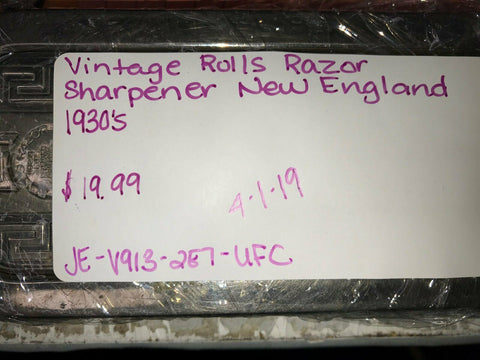 Vintage Rolls Razor
Sharpener New England
1930's
$19.99
4-1-19
JE-V913-287-UFC